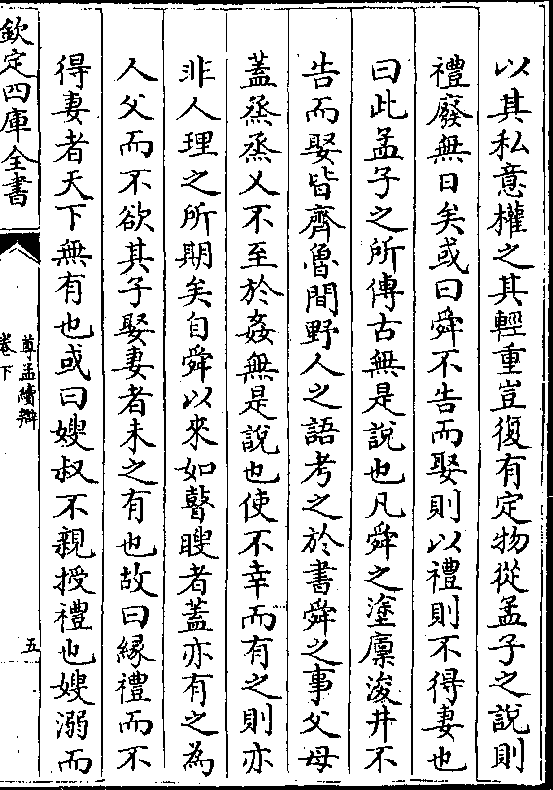 以其私意權之其輕重豈復有定物從孟子之說則
禮廢無日矣或曰舜不告而娶則以禮則不得妻也
曰此孟子之所傳古無是說也凡舜之塗廩浚井不
告而娶皆齊魯間野人之語考之於書舜之事父母
蓋烝烝乂不至於姦無是說也使不幸而有之則亦
非人理之所期矣自舜以來如瞽瞍者蓋亦有之為
人父而不欲其子娶妻者未之有也故曰緣禮而不
得妻者天下無有也或曰嫂叔不親授禮也嫂溺而
欽定四庫全書
尊孟續辯
卷下
五